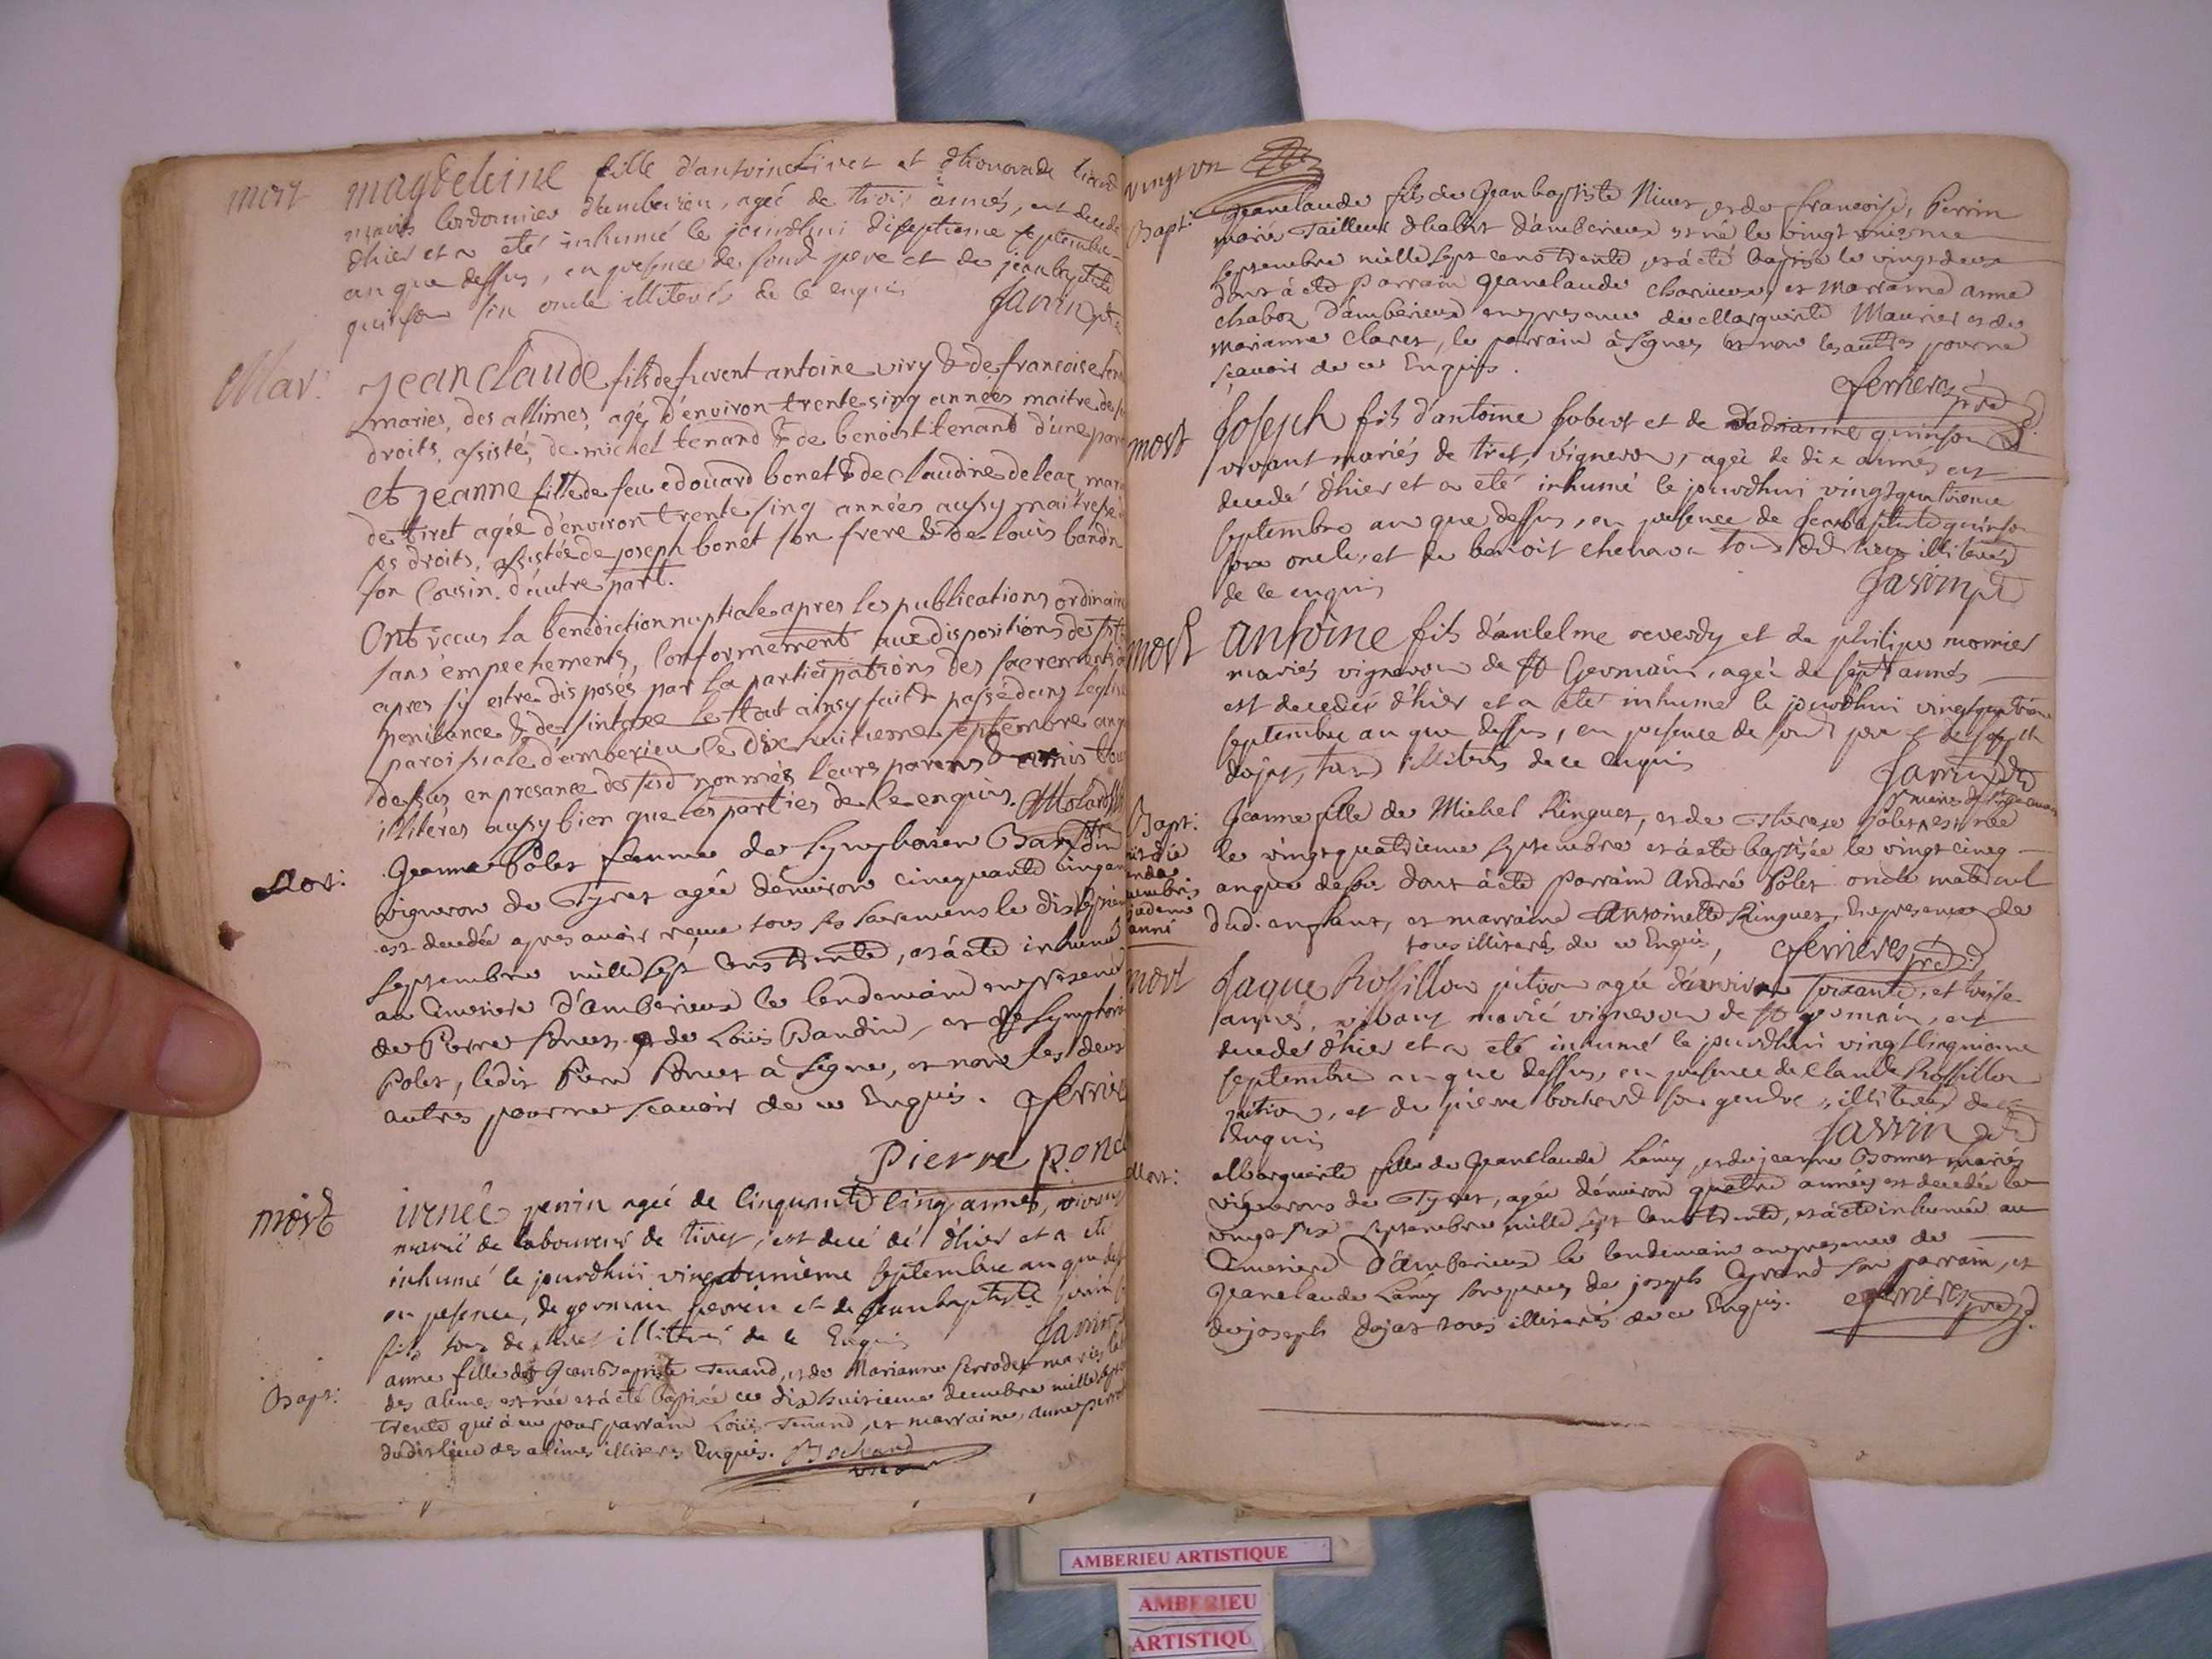 mort
magdeleine fille d'antoine Livet et d'honorade
mariés Cordonnier d'amberieu, agée de trois années, est decedé
d'hier et a eté inhumé le jourdhui diseptieme septembre
an que dessus, en presence de sond pere et de jeanbaptiste
quinson son oncle illiterés de ce enquis Janin ptre
Mar:
Jean claude fils de fuvent antoine viry & de francoise
mariés, des allimes, agé d'environ trente sinq années maitre de ses
droits, assisté, de michel tenand & de benoist tenand d'une part
et jeanne fille de feu edouard bonet & de claudine deleaz mariés
de tiret agée d'environ trente sinq années aussy maitresse de
ses droits, assistée de joseph bonet son frere & de louis bandin
son Cousin. d'autre part.
Ont recus la benediction nuptiale apres les publications ordinaires
sans empechements, Conformement aux dispositions des
apres sy estre disposés par la participations des sacrements de
penitence & de le tout ainsy fait & passé dans leglise
paroissiale d'amberieu le dix huitieme septembre an que
dessus en presance des susd nommés leurs parens & amis tous
illiteres aussy bien que les parties de Ce enquis. Molard
Mor:
Jeanne Polet femme de Symphorien Bandin
vigneron de Tyret agée denviron cinquante cinq ans
est decedée apres avoir reçue tous ses sacremens le
septembre mille sept cens trente, et à eté inhumé
au Cimetiere d'amberieux le lendemain en presence
de Pierre Ponet et de Loüis Bandin, et de Symphorien
Polet, ledit Pierre Ponet à signé, et non les deux
autres pour ne sçavoir de ce Enquis. ferrier
Pierre ponc
mort
irenée perrin agée de Cinquante Cinq années, vivant
marié de laboureur de tiret, est decedé d'hier et a eté
inhumé le jourdhui vingtunieme septembre an que dessus
en presence, de germain perrin et de Jeanbaptiste perrin
fils tous de tiret illiterés de ce Enquis Janin
Bapt:
anne fille de Jean Baptiste Tenand, et de Marianne ferrodet mariés
des alimes est née et à eté baptisée ce dix huitieme decembre mille sept cens
trente qui à eu pour parrain Loüis Tenand, et marraine, anne
dudit lieu des alimes illiteres Enquis. Bochard
vingt un
Bapt:
Jeanclaude fils de Jean baptiste Nivet et de francoise, Perrin
mariés Tailleur d'habits d'amberieux est né le vingt unieme
septembre mille sept cens trente, et à eté baptisé le vingt deux
dont à eté Parrain Jeanclaude Charieux, et Marraine anne
Chaboz d'amberieux en presence de Marguerite Maurier et de
Marianne Claret, le parrain à Signés et non les autres pour ne
sçavoir de ce Enquis.
ferrieres prd
mort
Joseph fils d'antoine Jobert et de d'adrianne quinson
vivant mariés de tiret, vigneron, agée de dix années est
decedé d'hier et a eté inhumé le jourdhui vingtquatrieme
septembre an que dessus, en presence de Jeanbaptiste quinson
son oncle, et de benoit tous illiterés
de ce enquis Janin ptre
mort
antoine fils d'antelme reverdy et de philipe
mariés vigneron de st Germain, agée de sept années
est decedés d'hier et a eté inhumé le jourdhui vingtquatrieme
septembre an que dessus, en presence de sond pere & de joseph
dojat, tous illiterés de ce enquis
Janin ptre
Bapt:
Jeanne fille de Michel Ringuet, et de Therese Polet est née
le vingtquatrieme septembre et à eté baptisée le vingt cinq
an que dessus dont à eté Parrain André Polet oncle maternel
dud. enfant, et marraine Antoinette Ringuet, En presence de
tous illiterés de ce Enquis, ferrieres prd
mort
Jaque Rossillon piton agée d'environ soixante, et treise
années, vivant marié vigneron de st germain, est
decedé d'hier et a eté inhumé le jourdhui vingtcinquieme
septembre an que dessus, en presence de Claude Rossillon
piton, et de pierre bochard son gendre, illiterés de ce
Enquis Janin
Mort:
Marguerite fille de Jeanclaude Lémy, et de jeanne Bonnet mariés
vignerons de Tyret, agée denviron quatre années est decedée le
vingt six septembre mille sept cens trente, et à eté inhumée au
Cimetiere d'amberieux le lendemain en presence de
Jeanclaude Lémy son pere, de joseph son parrain, et
de joseph Dojat tous illiterés de ce Enquis. ferrieres prd
AMBERIEU ARTISTIQUE
AMBERIEU
ARTISTIQU